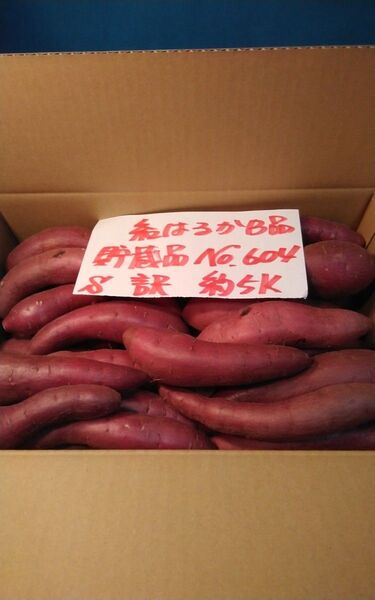 紅はるかB品
貯蔵品No.604
S 訳 約5K